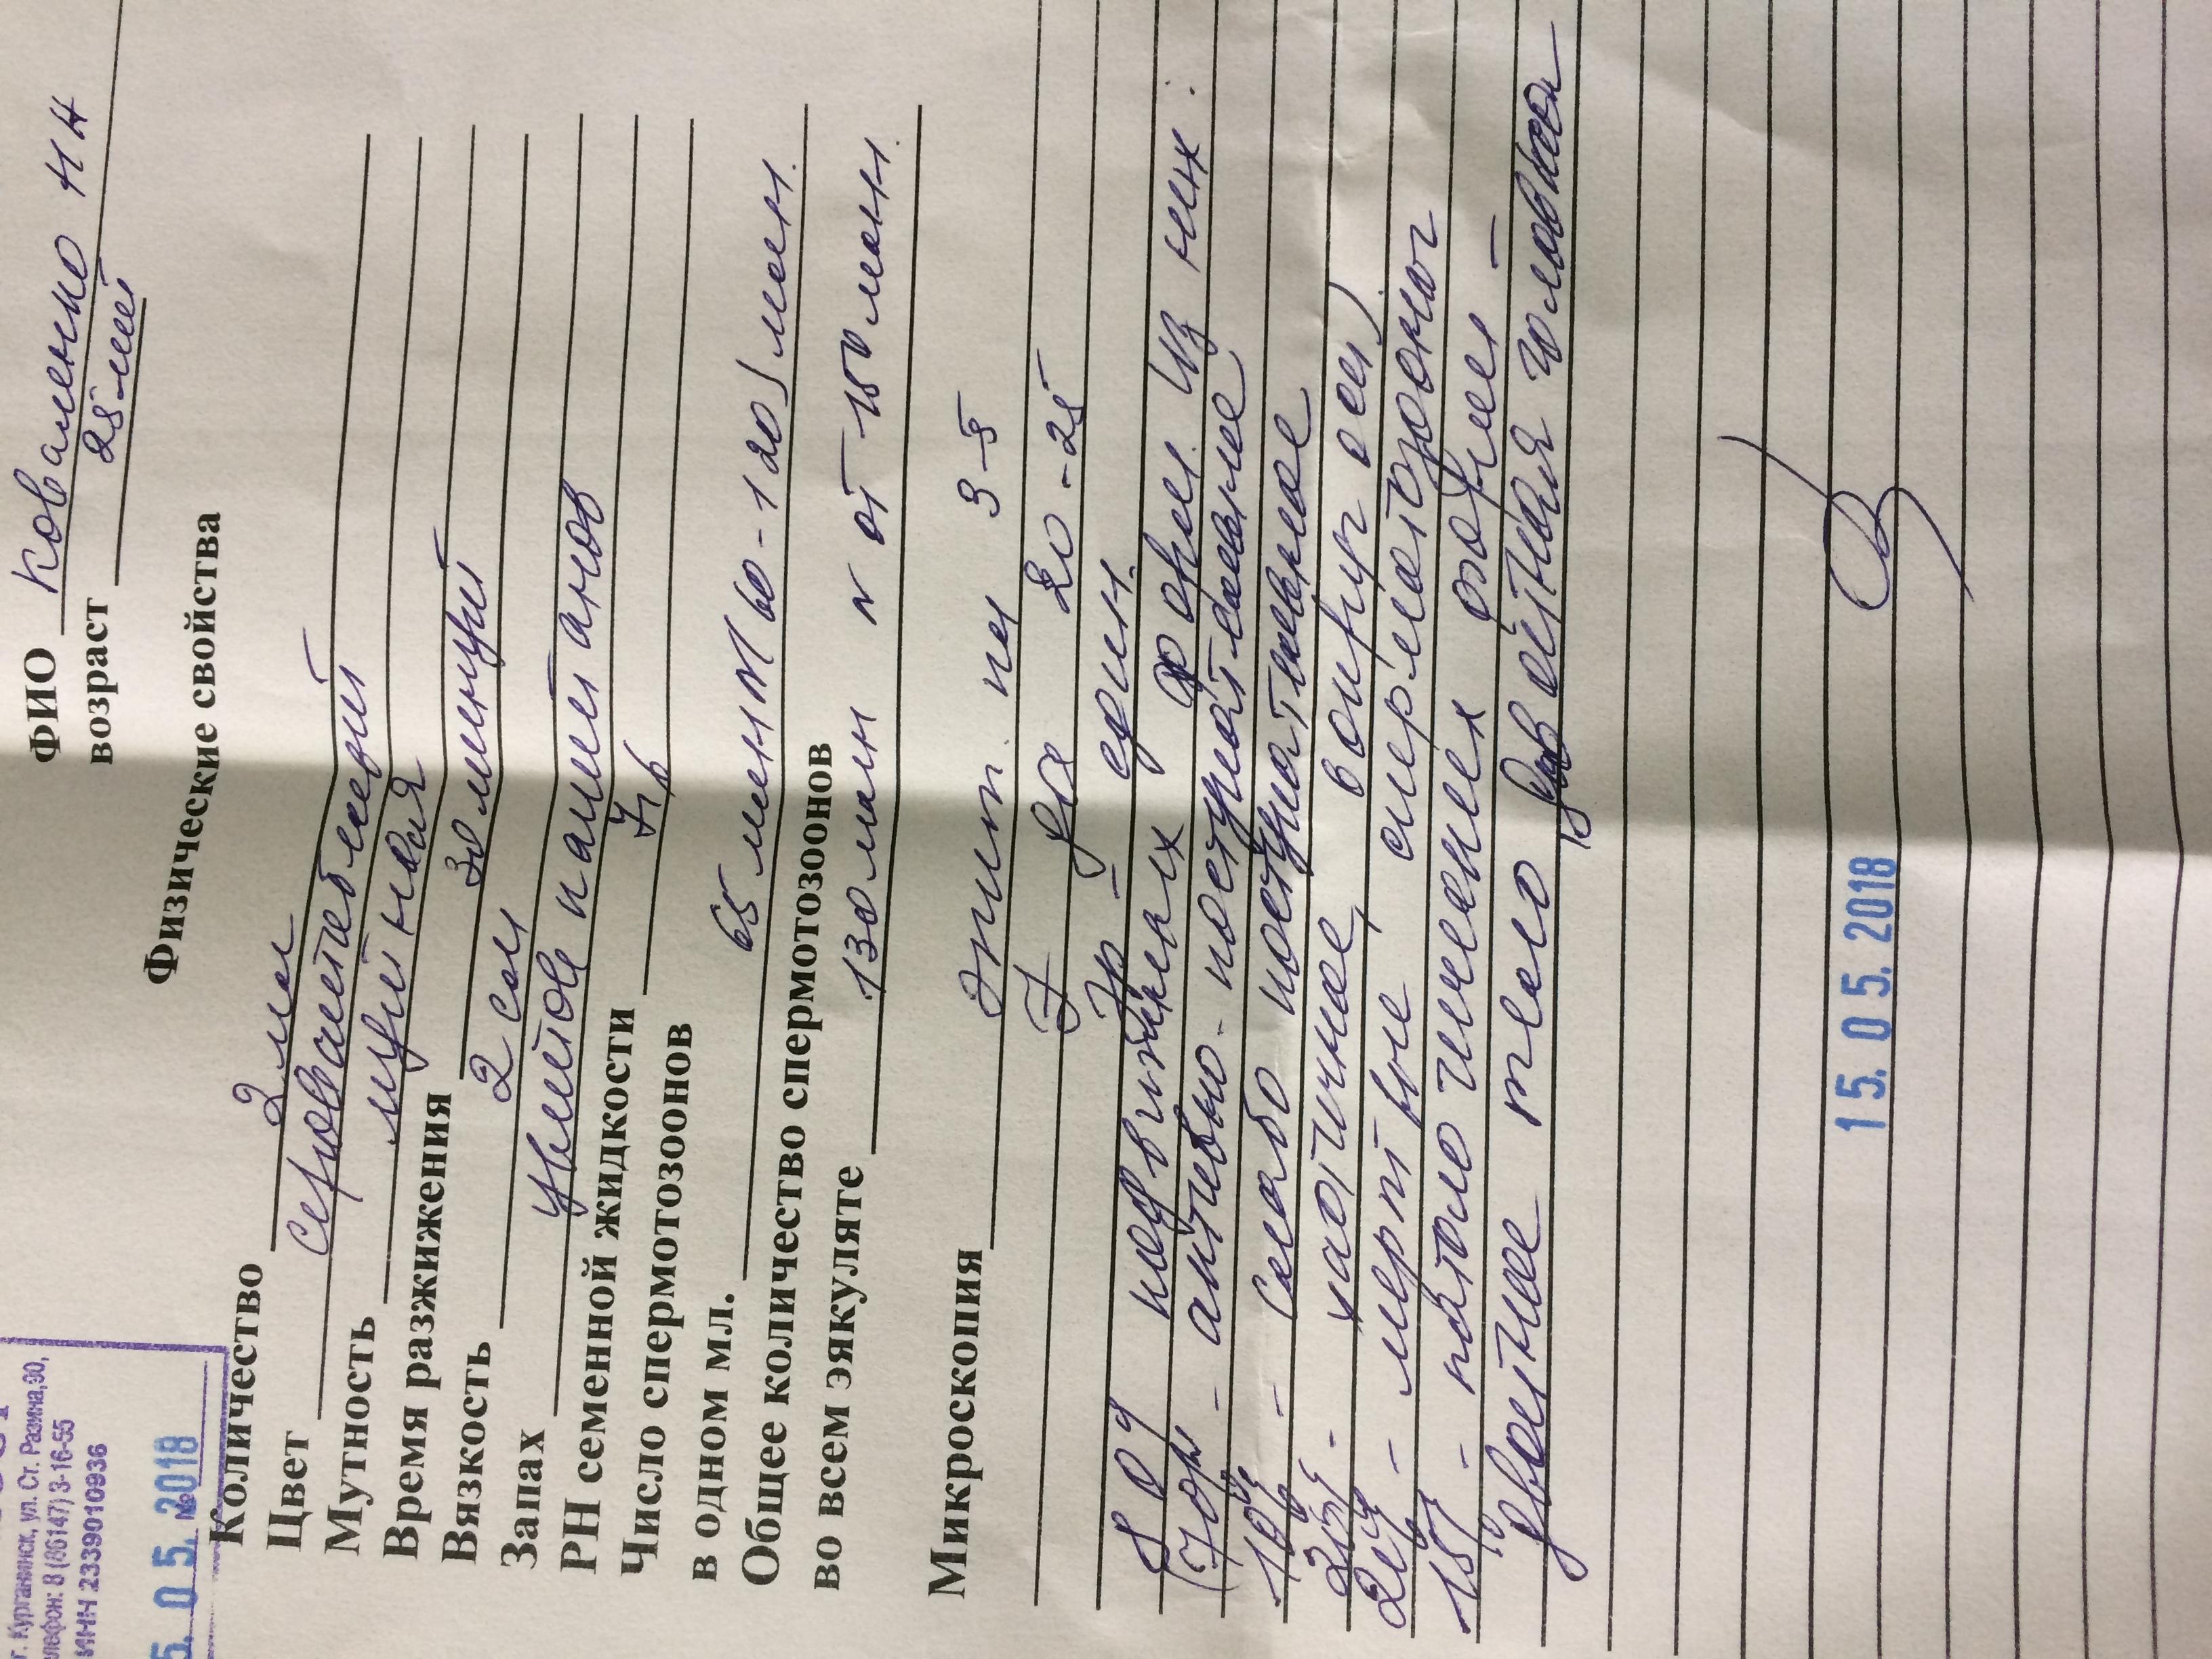 г. Курганинск, ул. Ст. Разина,90,
лефон: 8 (86147) 3-16-55
ИНН 2339010936
5. 0 5. 2018
№
ФИО Коваленко Н Н
возраст 28 лет
Физические свойства
Количество 2 мл
Цвет серовато белый
Мутность мутная
Время разжижения 30 минут
Вязкость 2 см
Запах цветов каштанов
РН семенной жидкости 7,6
Число спермотозоонов
в одном мл. 65 млн N 60-120 млн.
Общее количество спермотозоонов
во всем эякуляте 130 млн N от 180 млн.
Микроскопия Эпит. пл 3-5
L 20-25
Эр - един.
80% подвижных форм. Из них:
(70% - активно-поступательное
10% - слабо поступательное
20% - хаотичное, вокруг оси)
20% - мертвые сперматозоиды
18% - патологические формы -
двойное тело двойная головка
15. 0 5. 2018